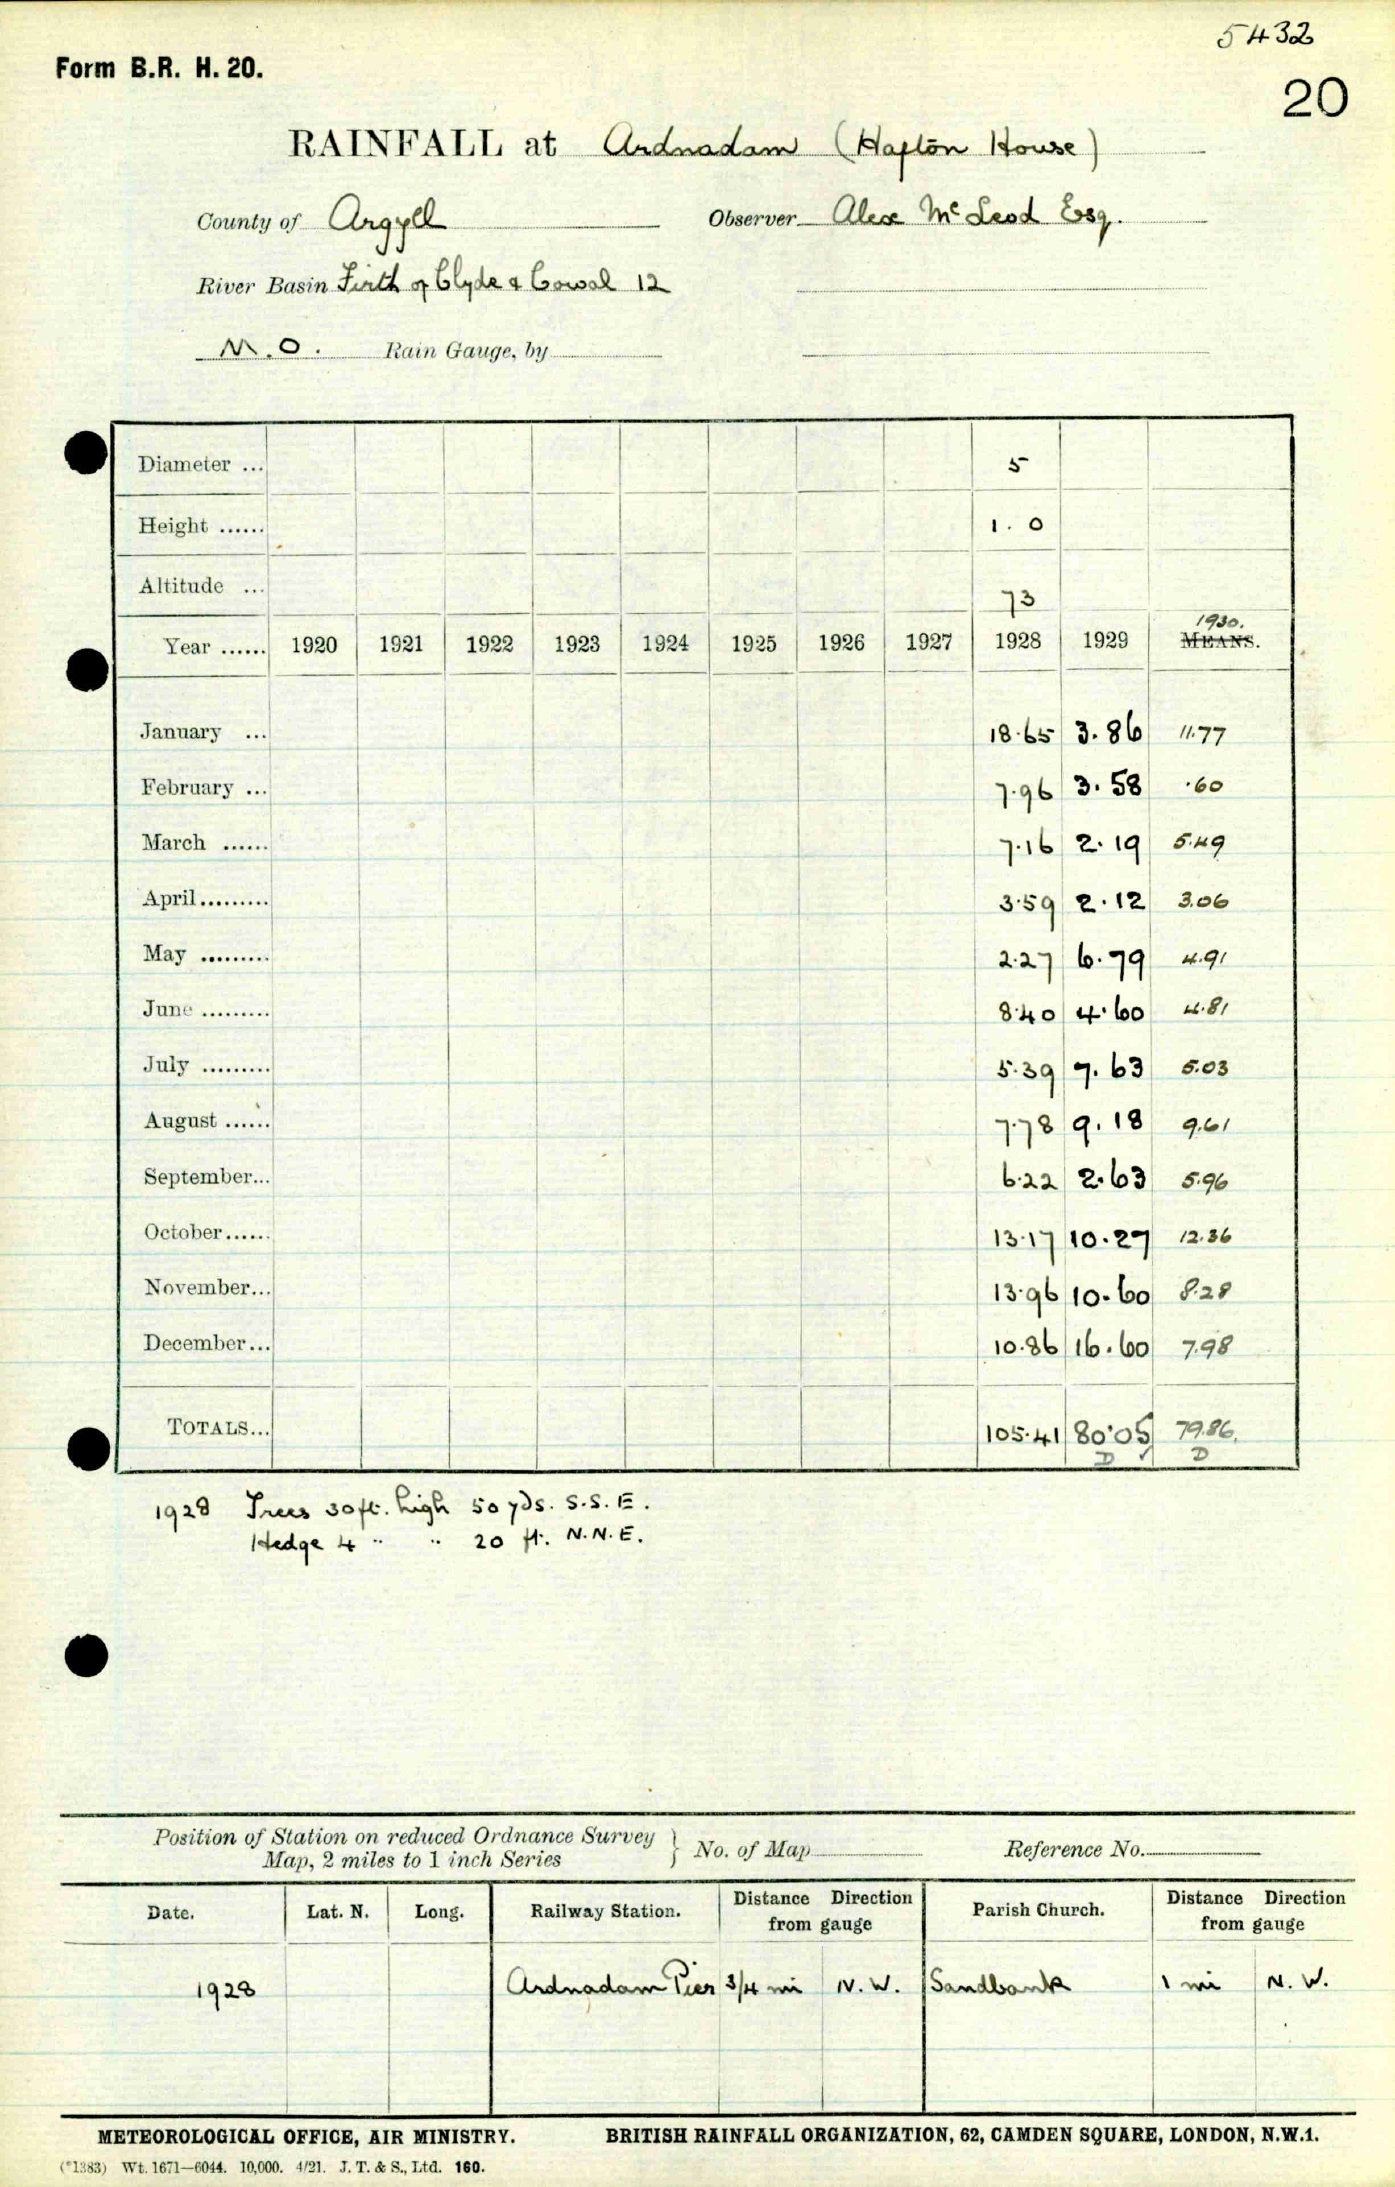 5432
Form B.R. H. 20.
20
RAINFALL at Ardnadam (Hafton House)
County of Argyll Observer Alex McLeod Esq.
River Basin Firth of Clyde & Cowal 12
M.O. Rain Gauge, by
Diameter ... 5
Height ...... 1. 0
Altitude ... 73
Year ...... 1920 1921 1922 1923 1924 1925 1926 1927 1928 1929 1930. MEANS.
January ... 18.65 3.86 11.77
February ... 7.96 3.58 .60
March ...... 7.16 2.19 5.49
April......... 3.59 2.12 3.06
May ......... 2.27 6.79 4.91
June ......... 8.40 4.60 4.81
July ......... 5.39 7.63 5.03
August ...... 7.78 9.18 9.61
September... 6.22 2.63 5.96
October...... 13.17 10.27 12.36
November... 13.96 10.60 8.28
December... 10.86 16.60 7.98
TOTALS... 105.41 80.05 79.86.
D ✓ D
1928 Trees 30ft. high 50 yds. S.S.E.
Hedge 4 " " 20 ft. N.N.E.
Position of Station on reduced Ordnance Survey
Map, 2 miles to 1 inch Series } No. of Map Reference No.
Date. Lat. N. Long. Railway Station. Distance Direction from gauge Parish Church. Distance Direction from gauge
1928 Ardnadam Pier 3/4 mi N.W. Sandbank 1 mi N.W.
METEOROLOGICAL OFFICE, AIR MINISTRY. BRITISH RAINFALL ORGANIZATION, 62, CAMDEN SQUARE, LONDON, N.W.1.
(*1383) Wt. 1671—6044. 10,000. 4/21. J. T. & S., Ltd. 160.